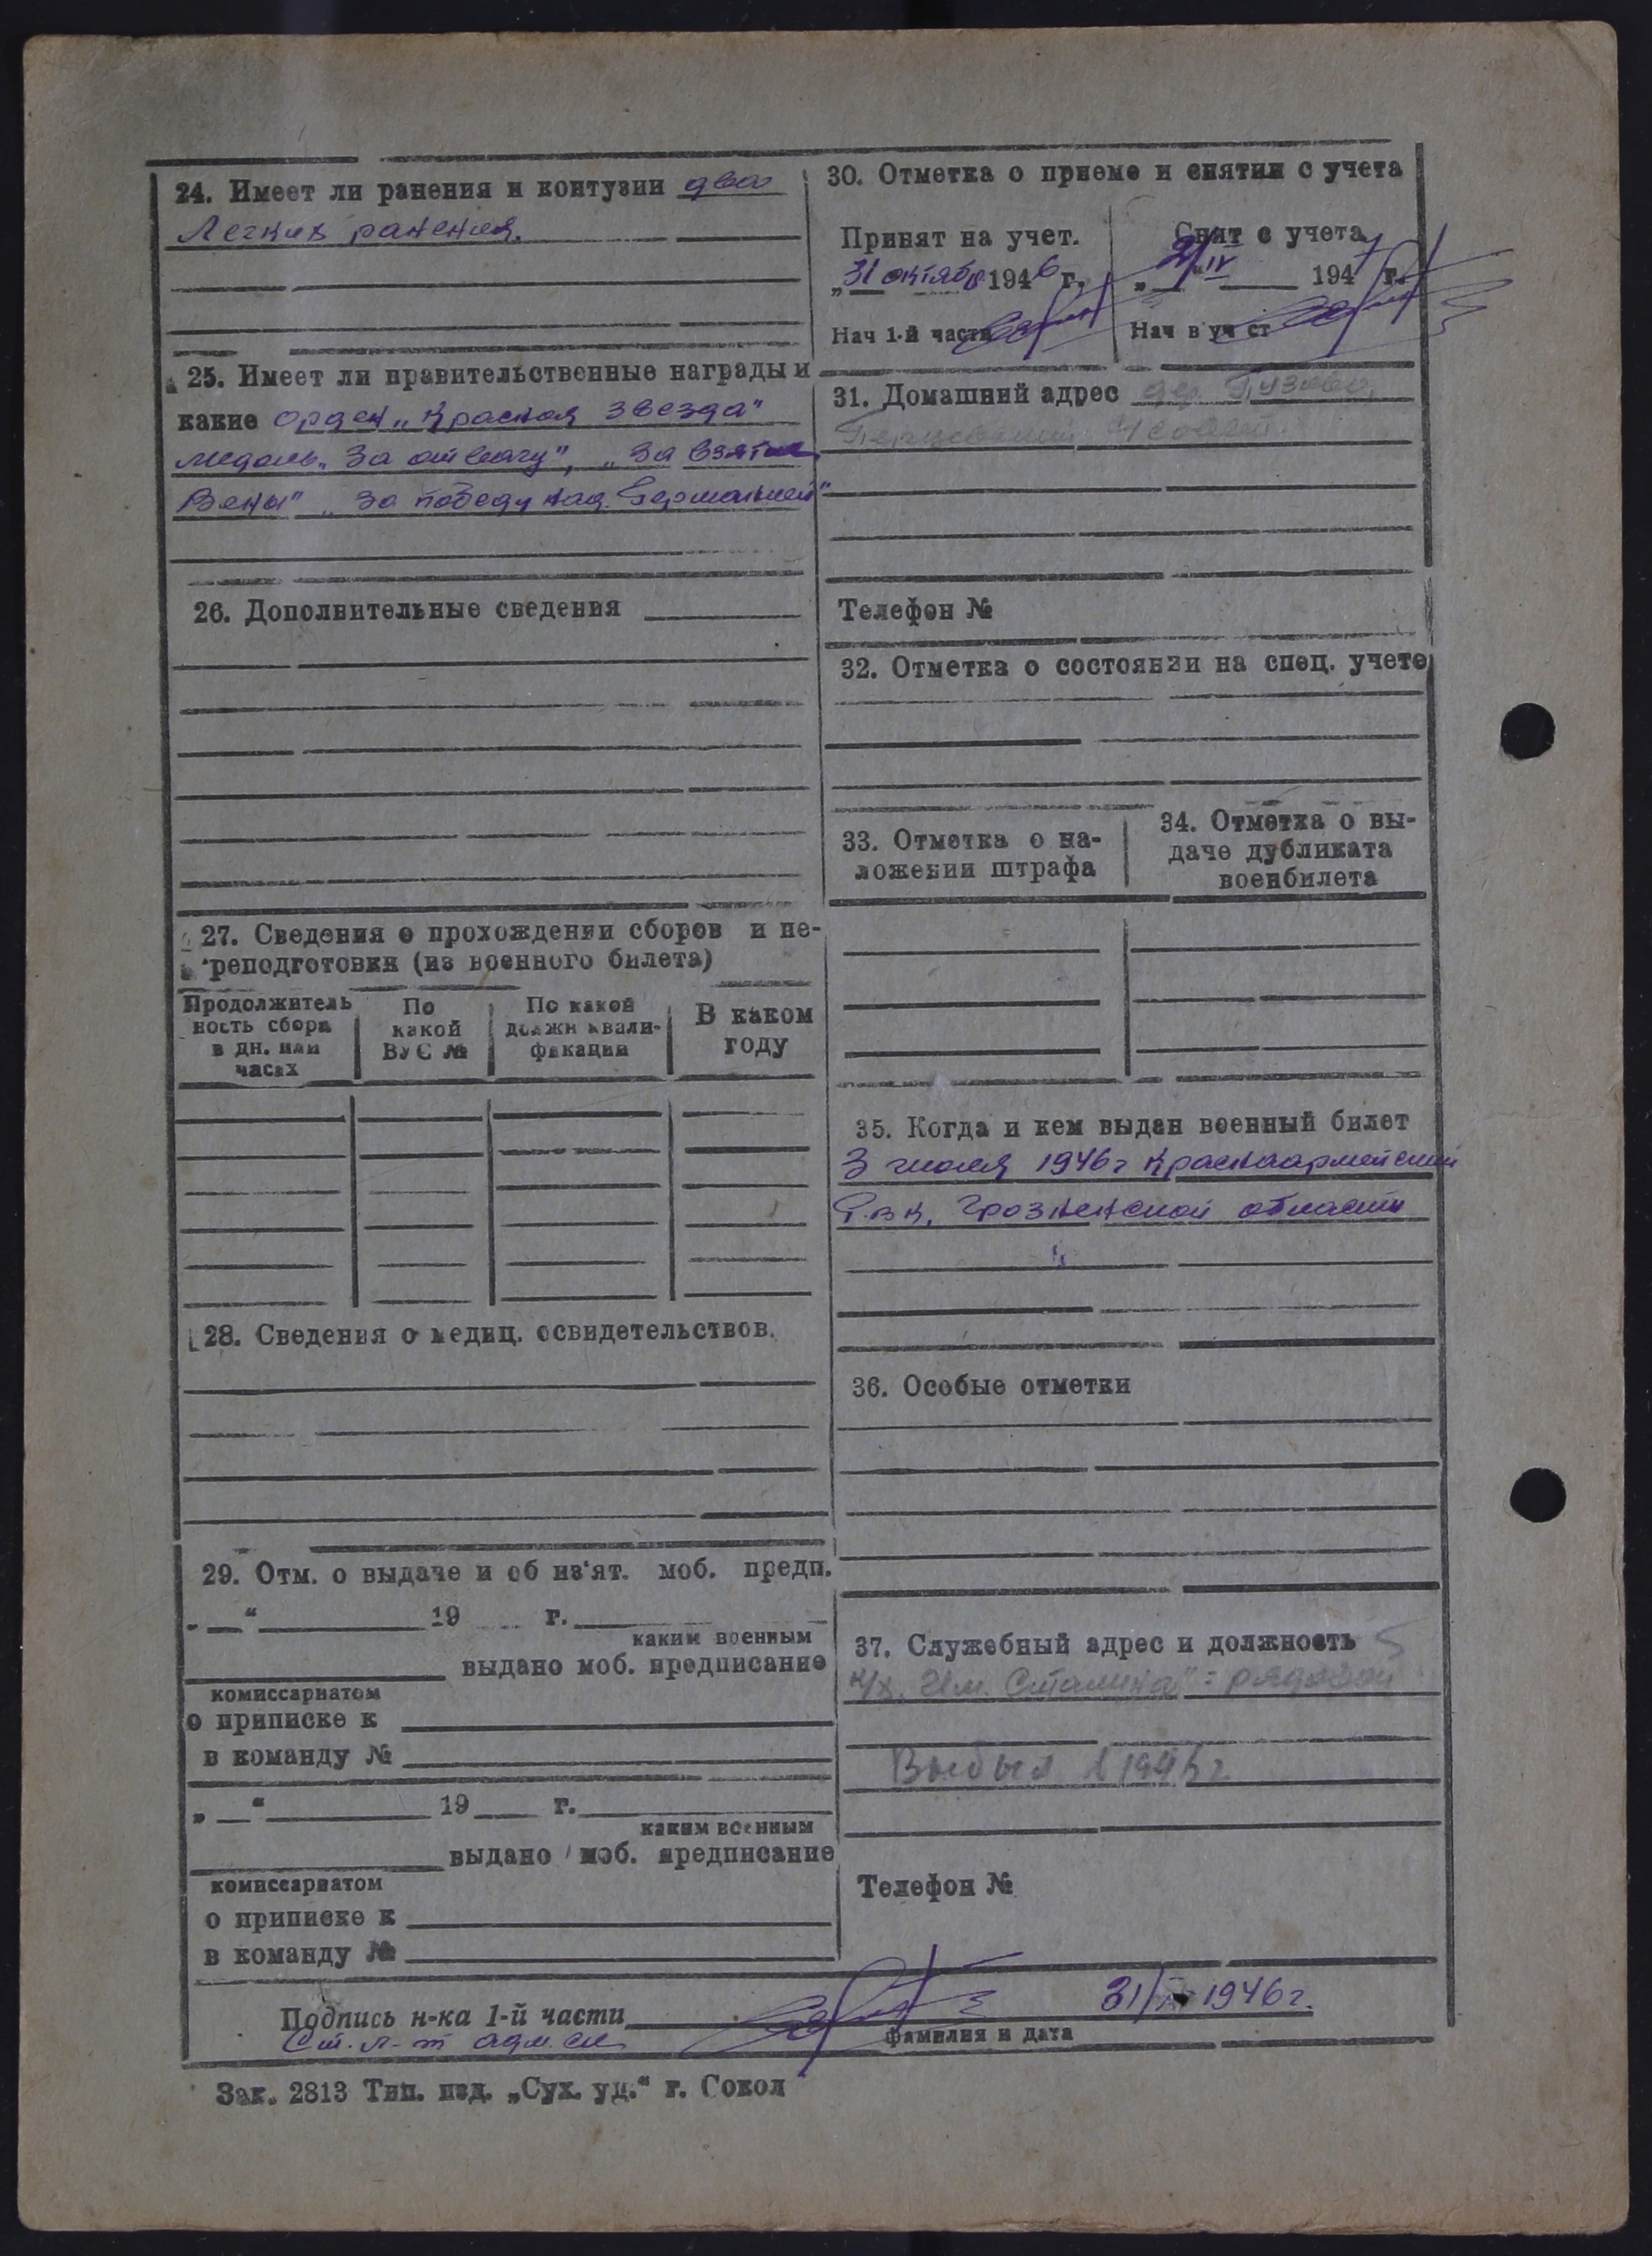 24. Имеет ли ранения и контузии два
Легких ранения.
25. Имеет ли правительственные награды и
какие орден „Красная звезда"
медаль „За отвагу", „За взятие
Вены" „За победу над Германией"
26. Дополнительные сведения
27. Сведения о прохождении сборов и пе-
реподготовки (из военного билета)
Продолжитель
ность сбора
в дн. или
часах
По
какой
ВУС №
По какой
должн квали-
фикации
В каком
году
28. Сведения о медиц. освидетельствов.
29. Отм. о выдаче и об из'ят. моб. предп.
„ “ 19 г.
каким военным
выдано моб. предписание
комиссариатом
о приписке к
в команду №
„ “ 19 г.
каким военным
выдано моб. предписание
комиссариатом
о приписке к
в команду №
30. Отметка о приеме и снятии с учета
Принят на учет.
„31 октября 1946 г.
Нач 1-й части
Снят с учета
IV 1947 г.
Нач в уч ст
31. Домашний адрес дер.
Телефон №
32. Отметка о состоянии на спец. учете
33. Отметка о на-
ложении штрафа
34. Отметка о вы-
даче дубликата
военбилета
35. Когда и кем выдан военный билет
3 июля 1946 г Красноармейский
Р.в.к. Грозненской области
36. Особые отметки
37. Служебный адрес и должность
к/х. Им. Сталина" - рядовой
Выбыл в
Телефон №
Подпись н-ка 1-й части 31/ 1946 г.
Ст. л-т адм. сл фамилия и дата
Зак. 2813 Тип. изд. „Сух. уд.“ г. Сокол